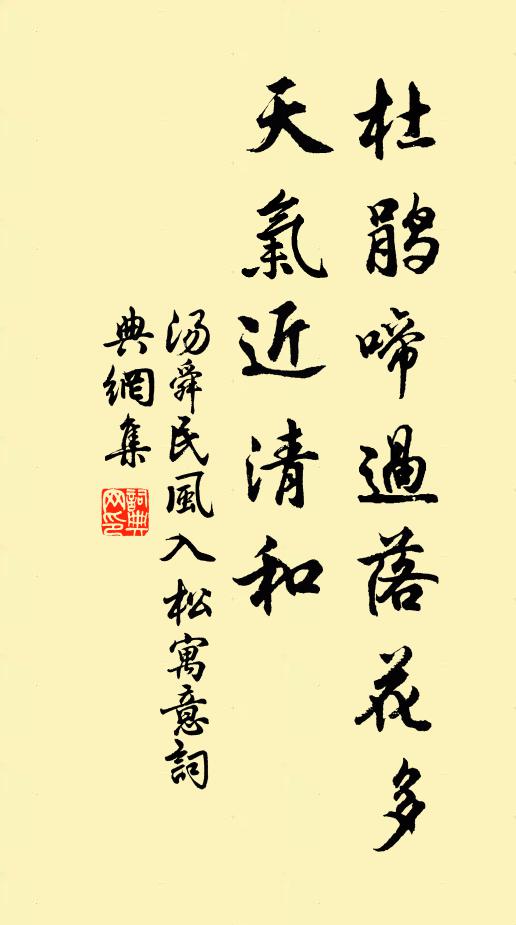 杜鹃啼過落花多
天氣近清和
汤舜民風入松寓意詞
典網集
詞典
网印